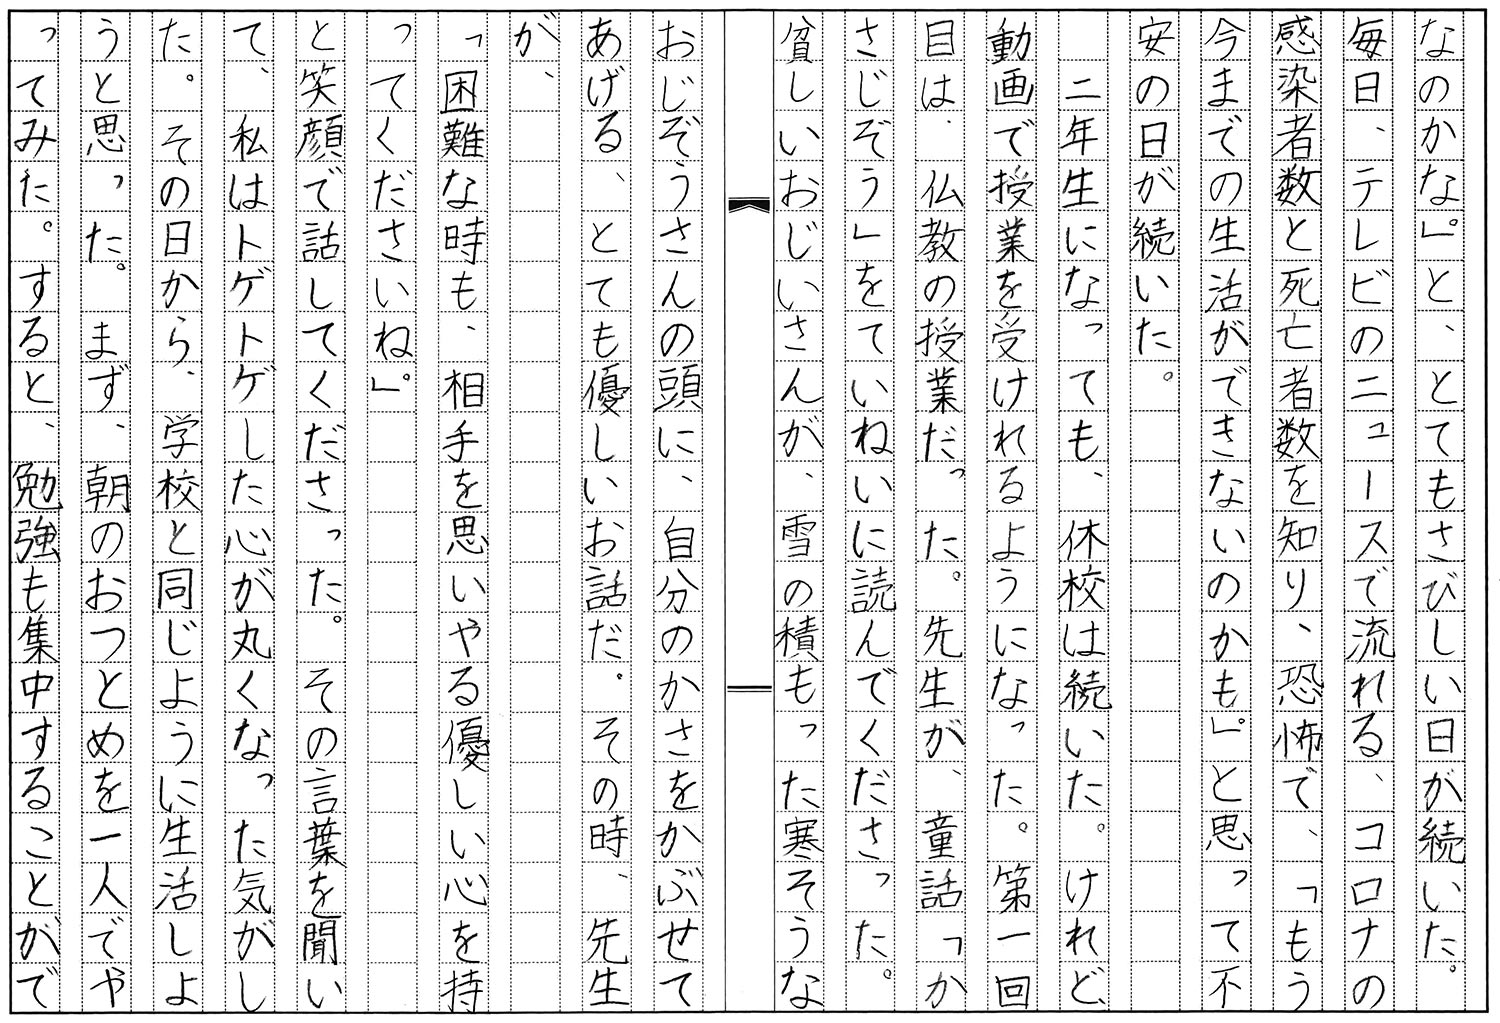 なのかな。」と、とてもさびしい日が続いた。
毎日、テレビのニュースで流れる、コロナの
感染者数と死亡者数を知り、恐怖で、「もう
今までの生活ができないのかも。」と思って不
安の日が続いた。
　二年生になっても、休校は続いた。けれど、
動画で授業を受けれるようになった。第一回
目は、仏教の授業だった。先生が、童話「か
さじぞう」をていねいに読んでくださった。
貧しいおじいさんが、雪の積もった寒そうな
おじぞうさんの頭に、自分のかさをかぶせて
あげる、とても優しいお話だ。その時、先生
が、
「困難な時も、相手を思いやる優しい心を持
ってくださいね。」
と笑顔で話してくださった。その言葉を聞い
て、私はトゲトゲした心が丸くなった気がし
た。その日から、学校と同じように生活しよ
うと思った。まず、朝のおつとめを一人でや
ってみた。すると、勉強も集中することがで